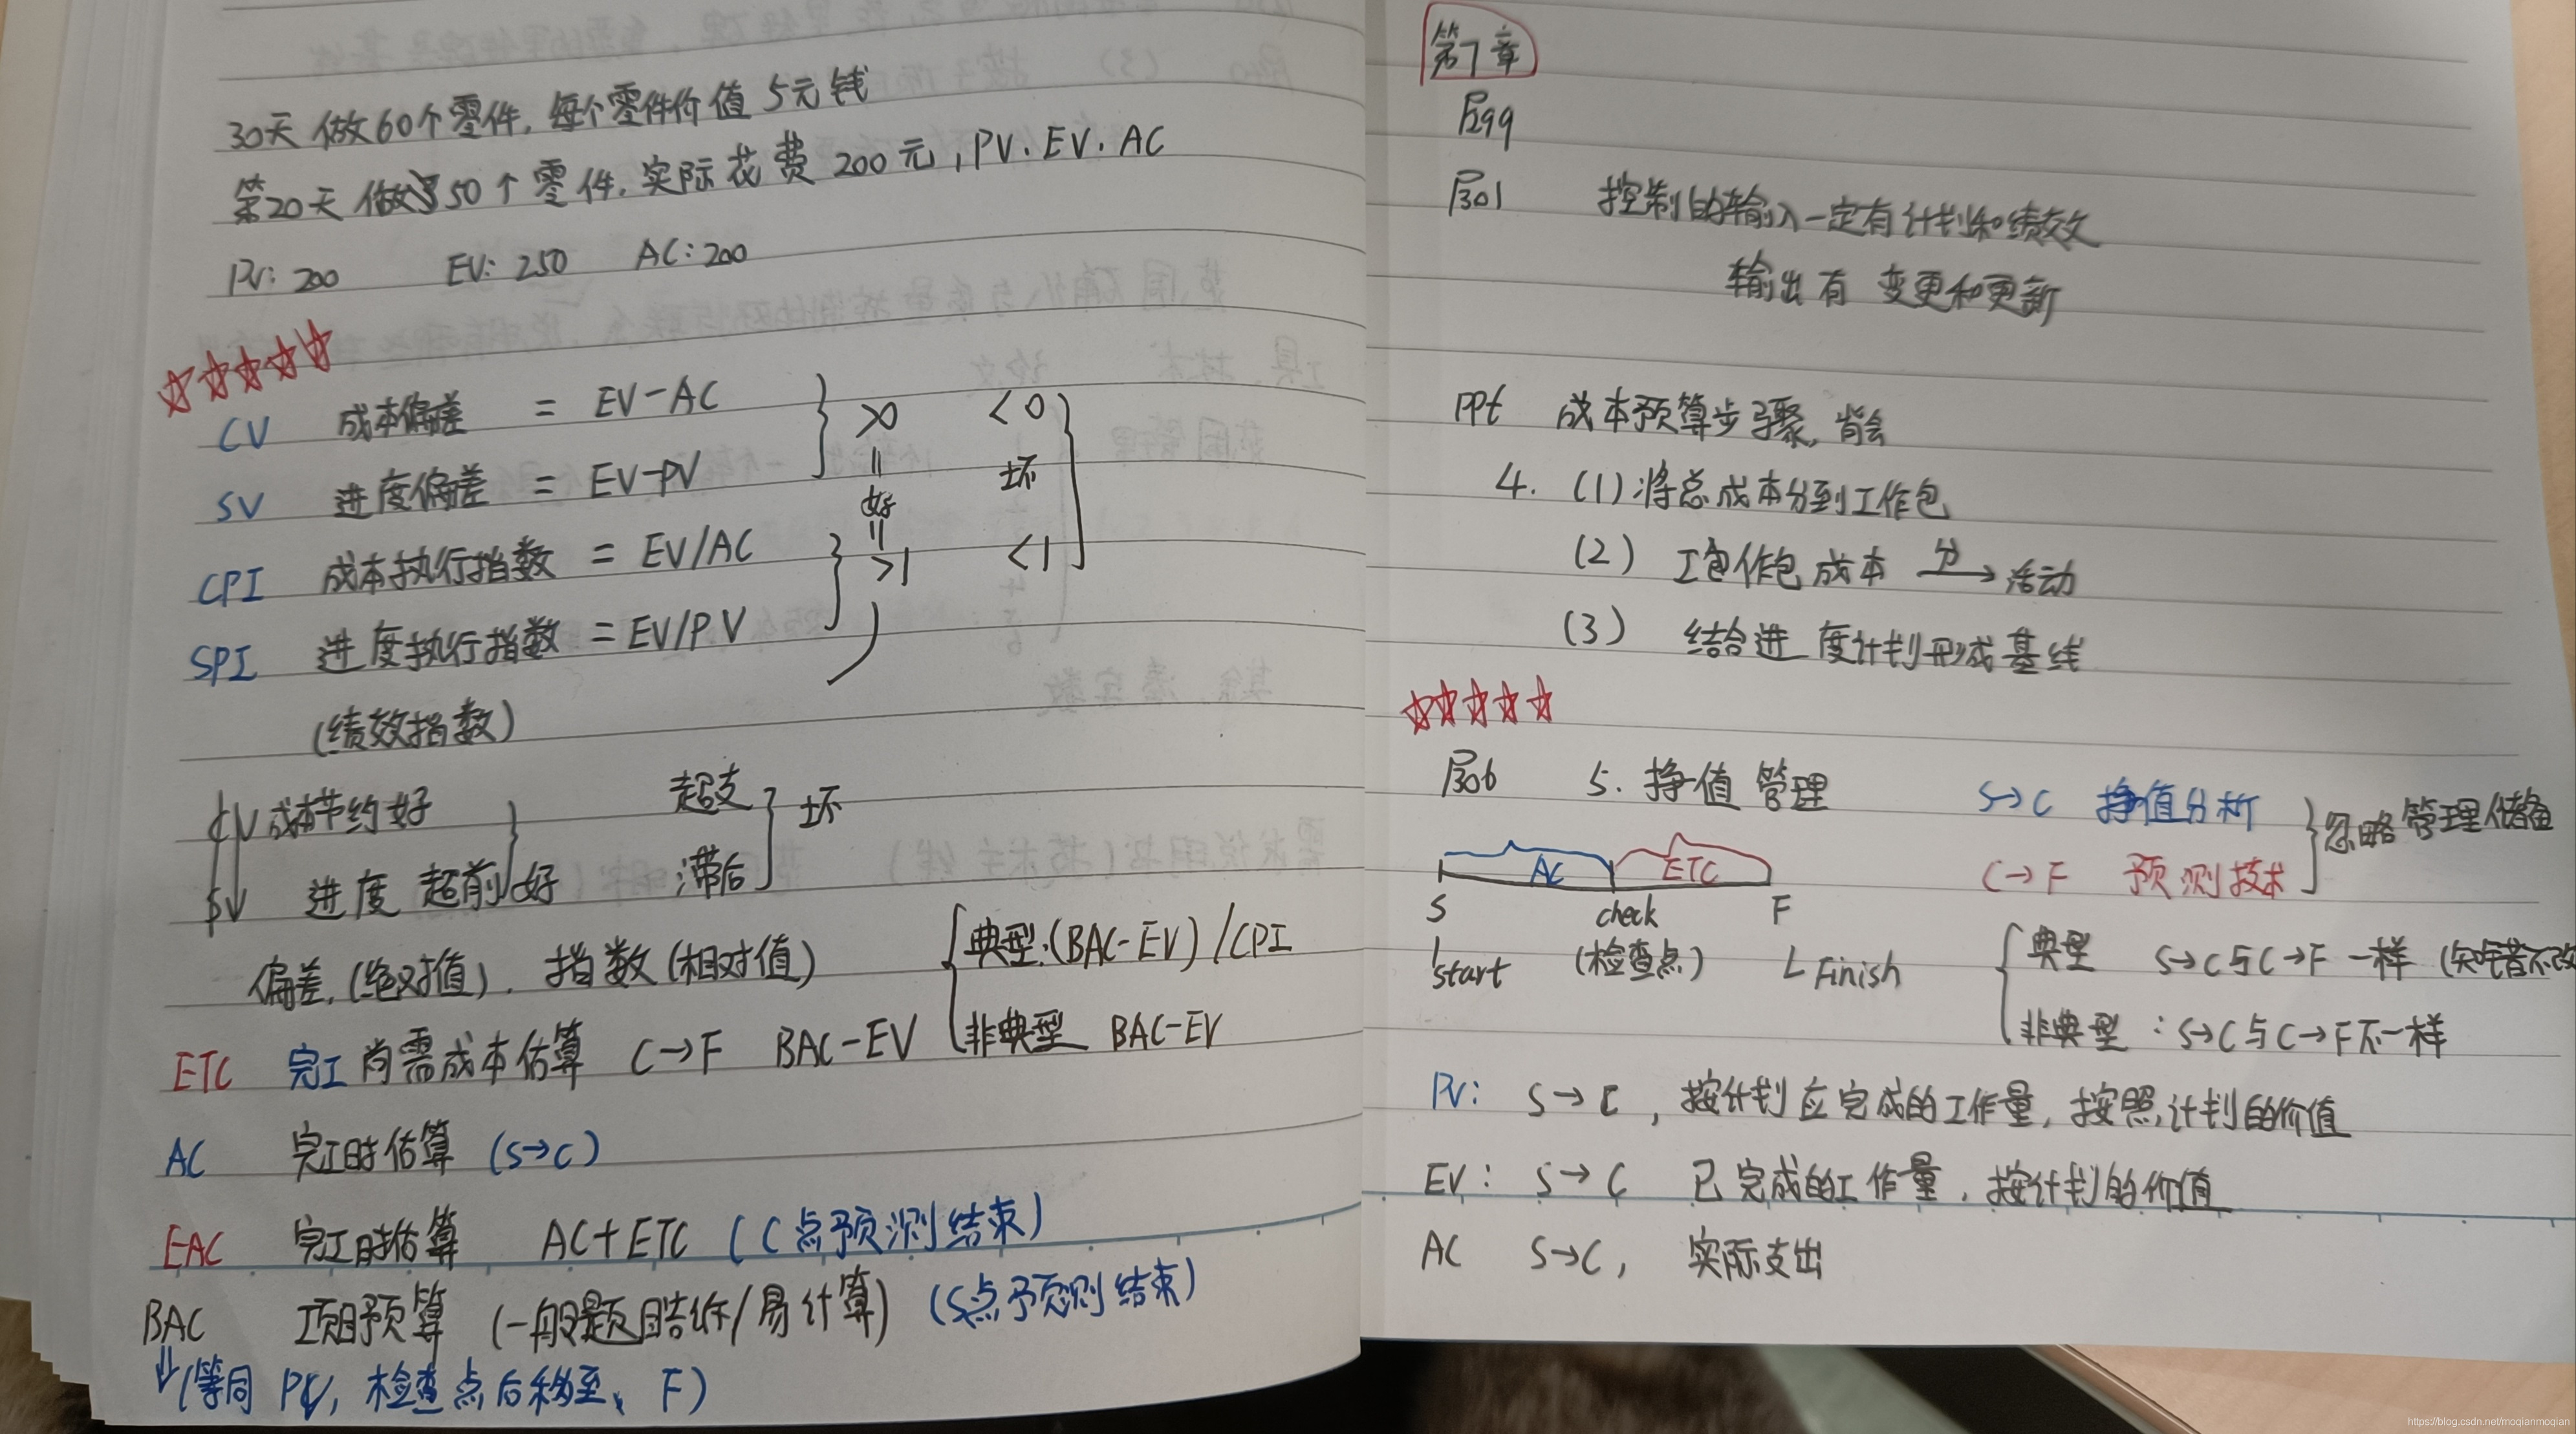 30天做60个零件,每个零件价值5元钱
第20天做了50个零件.实际花费200元,PV.EV.AC
PV:200 EV:250 AC:200
☆☆☆☆☆
CV 成本偏差 = EV-AC >0 <0
SV 进度偏差 = EV-PV 好 坏
CPI 成本执行指数 = EV/AC >1 <1
SPI 进度执行指数 = EV/PV
(绩效指数)
CV 成本节约好 超支 坏
SV 进度超前好 滞后
偏差.(绝对值). 指数(相对值) 典型:(BAC-EV)/CPI
ETC 完工尚需成本估算 C→F BAC-EV 非典型 BAC-EV
AC 完工时估算 (S→C)
EAC 完工时估算 AC+ETC (C点预测结束)
BAC 项目预算 (一般题目告诉/易计算) (S点予预测结束)
↓(等同PV,检查点后移至、F)
第7章
P299
P301 控制的输入一定有计划和绩效
输出有 变更和更新
PPt 成本预算步骤,背会
4. (1)将总成本分到工作包
(2) 工作包成本 分→ 活动
(3) 结合进度计划形成基线
☆☆☆☆☆
P306 5. 挣值管理 S→C 挣值分析 忽略管理储备
AC ETC C→F 预测技术
S check F
start (检查点) Finish 典型 S→C与C→F一样
非典型:S→C与C→F不一样
PV: S→C,按计划应完成的工作量,按照计划的价值
EV: S→C 已完成的工作量,按计划的价值
AC S→C, 实际支出
https://blog.csdn.net/moqianmoqian